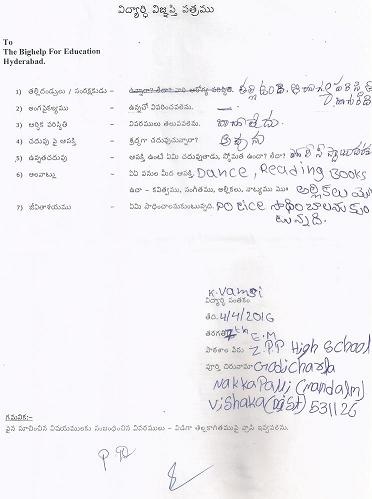 విద్యార్ధి విజ్ఞప్తి పత్రము
To
The Bighelp For Education
Hyderabad.
1) తల్లిదండ్రులు / సంరక్షకుడు - ఉన్నారా? లేదా? వారి ఆరోగ్య పరిస్థితి. తల్లి ఉంది.
2) అంగవైకల్యము - ఉన్నచో వివరించవలెను.
3) ఆర్ధిక పరిస్థితి - వివరములు తెలుపవలెను. బాగాలేదు
4) చదువు పై ఆసక్తి - శ్రద్ధగా చదువుచున్నారా? అవును
5) ఉన్నతచదువు - ఆసక్తి ఉంటే ఏమి చదువుతాడు, స్తోమత ఉందా? లేదా?
6) అలవాట్లు - ఏఏ పనుల మీద ఆసక్తి. Dance, Reading Books
ఉదా - కవిత్వము, సంగీతము, అల్లికలు, నాట్యము మొ॥ అల్లికలు
7) జీవితాశయము - ఏమి సాధించాలనుకుంటున్నది. Police సాధించాలనుకుం
టున్నది.
K. Vamsi
విద్యార్ధి సంతకం
తేది. 4/4/2016
తరగతి 7th E.M
పాఠశాల పేరు Z.P.P High School
పూర్తి చిరునామా Godicharla
Nakkapalli (mandalm)
Vishaka (Dist) 531126
గమనిక:-
పైన సూచించిన విషయములకు సంబంధించిన వివరములు - విడిగా తెల్లకాగితముపై వ్రాసి ఇవ్వవలెను.